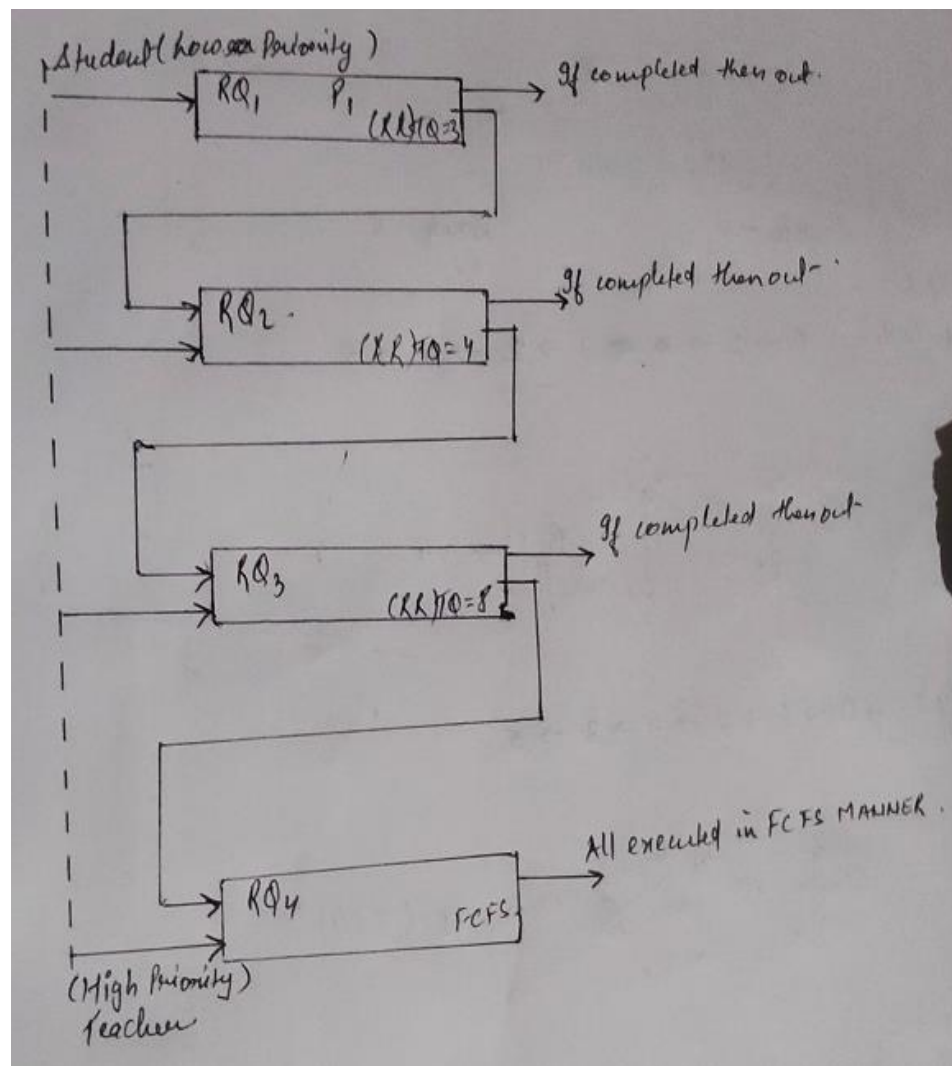 Student (Low Priority)
RQ1 P1
(RR)TQ=3
If completed then out.
RQ2.
(RR)TQ=4
If completed then out
RQ3
(RR)TQ=8
If completed then out
RQ4
FCFS
All executed in FCFS MANNER.
(High Priority)
Teacher